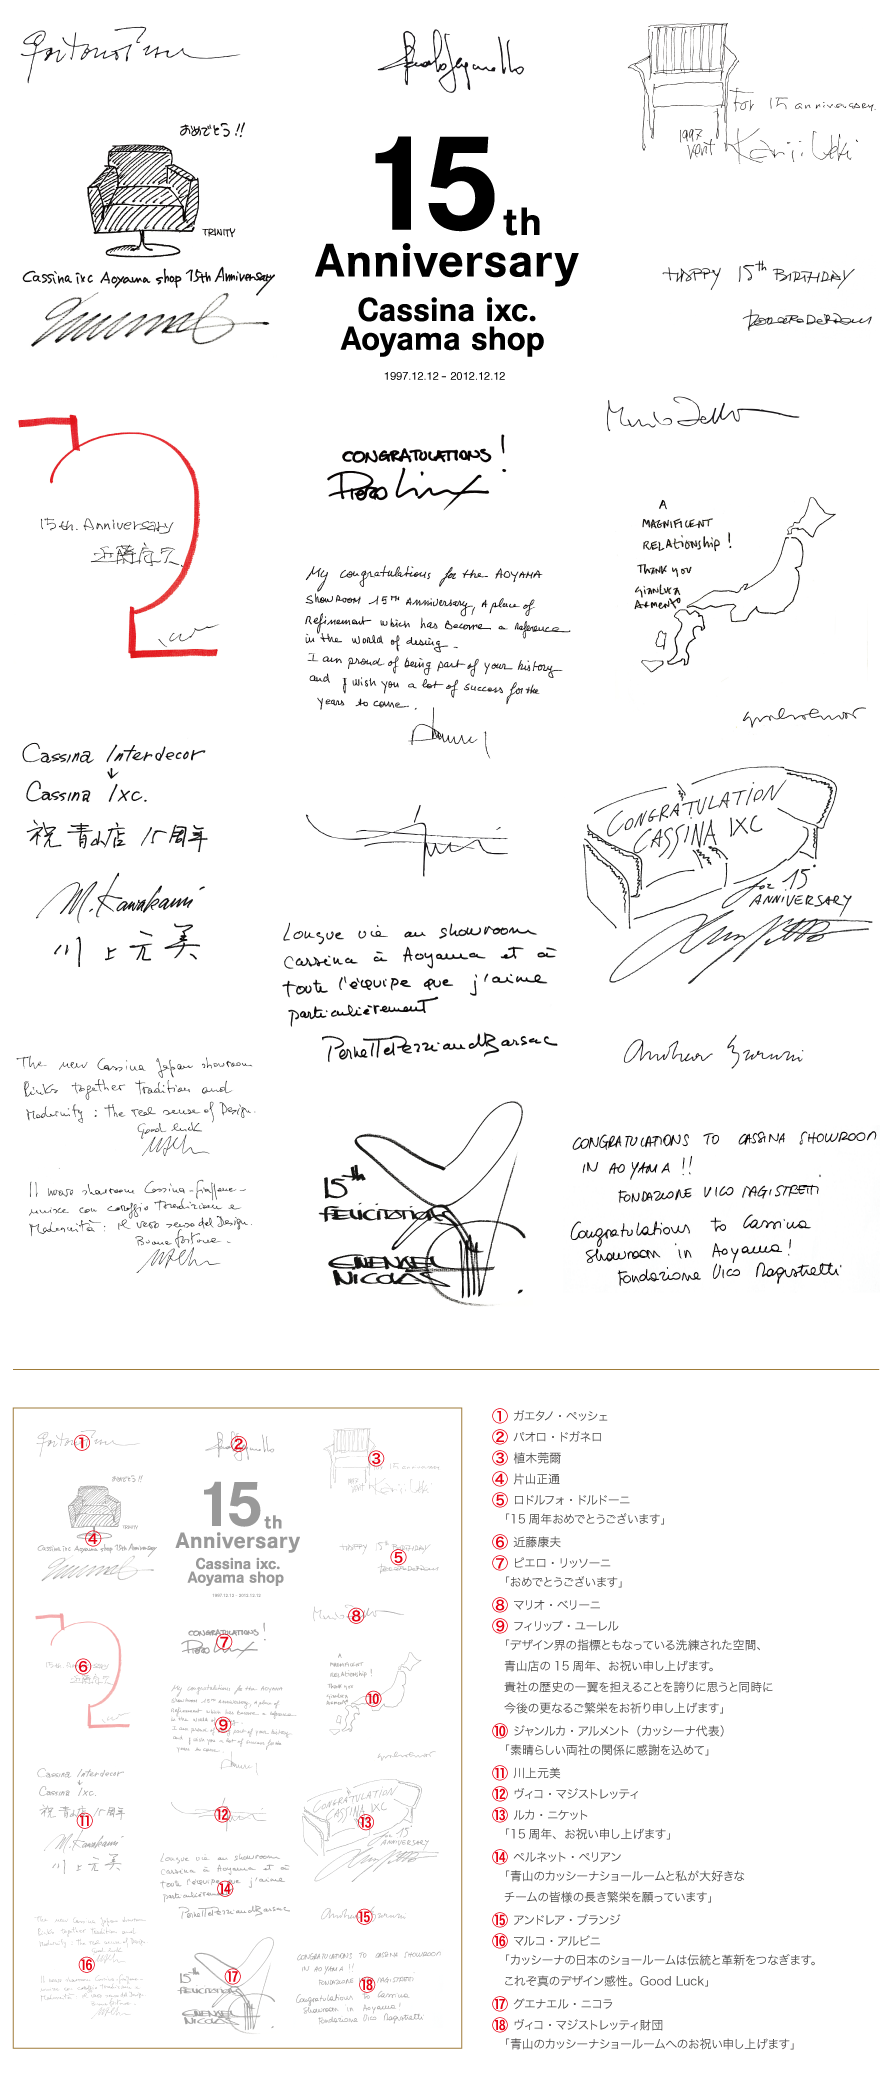 おめでとう!!
TRINITY
Cassina ixc Aoyama shop 15th Anniversary
15th
Anniversary
Cassina ixc.
Aoyama shop
1997.12.12 - 2012.12.12
For 15 anniversary.
1997
vent Kanji.Ueki
HAPPY 15th BIRTHDAY
15th. Anniversary
CONGRATULATIONS!
Piero Liss
My congratulations for the AOYAMA
Showroom 15TH Anniversary, A place of
Refinement which has become a reference
in the world of desing.
I am proud of being part of your history
and I wish you a lot of success for the
years to come.
A
MAGNIFICENT
RELATIONSHIP!
THANK YOU
GIANLUCA
ARMENTO
Cassina Interdecor
↓
Cassina Ixc.
祝 青山店 15周年
M. Kawakami
川上元美
CONGRATULATION
CASSINA IXC
for 15°
ANNIVERSARY
Longue vie au showroom
Cassina à Aoyama et à
toute l'équipe que j'aime
particulièrement
Pernette Perriand Barsac
The new Cassina Japan showroom
links together Tradition and
Modernity : the real sense of Design.
Good luck
Il nuovo showroom Cassina-Giappone-
unisce con coraggio Tradizione e
Modernità : il vero senso del Design.
Buona fortuna -
15th
FELICITATIONS
GWENAEL
NICOLAS
Andrea Branzi
CONGRATULATIONS TO CASSINA SHOWROOM
IN AOYAMA !!
FONDAZIONE VICO MAGISTRETTI
Congratulations to Cassina
Showroom in Aoyama!
Fondazione Vico Magistretti
① ガエタノ・ペッシェ
② パオロ・ドガネロ
③ 植木莞爾
④ 片山正通
⑤ ロドルフォ・ドルドーニ
「15 周年おめでとうございます」
⑥ 近藤康夫
⑦ ピエロ・リッソーニ
「おめでとうございます」
⑧ マリオ・ベリーニ
⑨ フィリップ・ユーレル
「デザイン界の指標ともなっている洗練された空間、
青山店の 15 周年、お祝い申し上げます。
貴社の歴史の一翼を担えることを誇りに思うと同時に
今後の更なるご繁栄をお祈り申し上げます」
⑩ ジャンルカ・アルメント（カッシーナ代表）
「素晴らしい両社の関係に感謝を込めて」
⑪ 川上元美
⑫ ヴィコ・マジストレッティ
⑬ ルカ・ニケット
「15 周年、お祝い申し上げます」
⑭ ペルネット・ペリアン
「青山のカッシーナショールームと私が大好きな
チームの皆様の長き繁栄を願っています」
⑮ アンドレア・ブランジ
⑯ マルコ・アルビニ
「カッシーナの日本のショールームは伝統と革新をつなぎます。
これぞ真のデザイン感性。Good Luck」
⑰ グエナエル・ニコラ
⑱ ヴィコ・マジストレッティ財団
「青山のカッシーナショールームへのお祝い申し上げます」